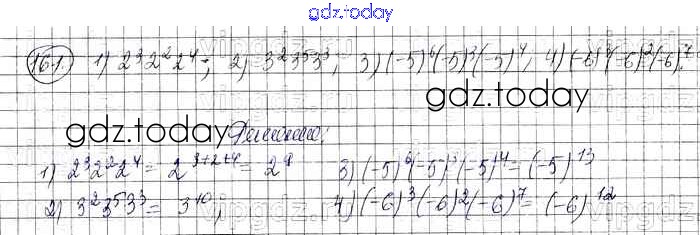 gdz.today
161. 1) 2³2²2⁴; 2) 3²3⁵3³; 3) (-5)⁶(-5)³(-5)⁴; 4) (-6)³(-6)²(-6)⁷.
gdz.today
gdz.today Решение:
1) 2³2²2⁴ = 2³⁺²⁺⁴ = 2⁹ 3) (-5)⁶(-5)³(-5)⁴ = (-5)¹³
2) 3²3⁵3³ = 3¹⁰; 4) (-6)³(-6)²(-6)⁷ = (-6)¹²